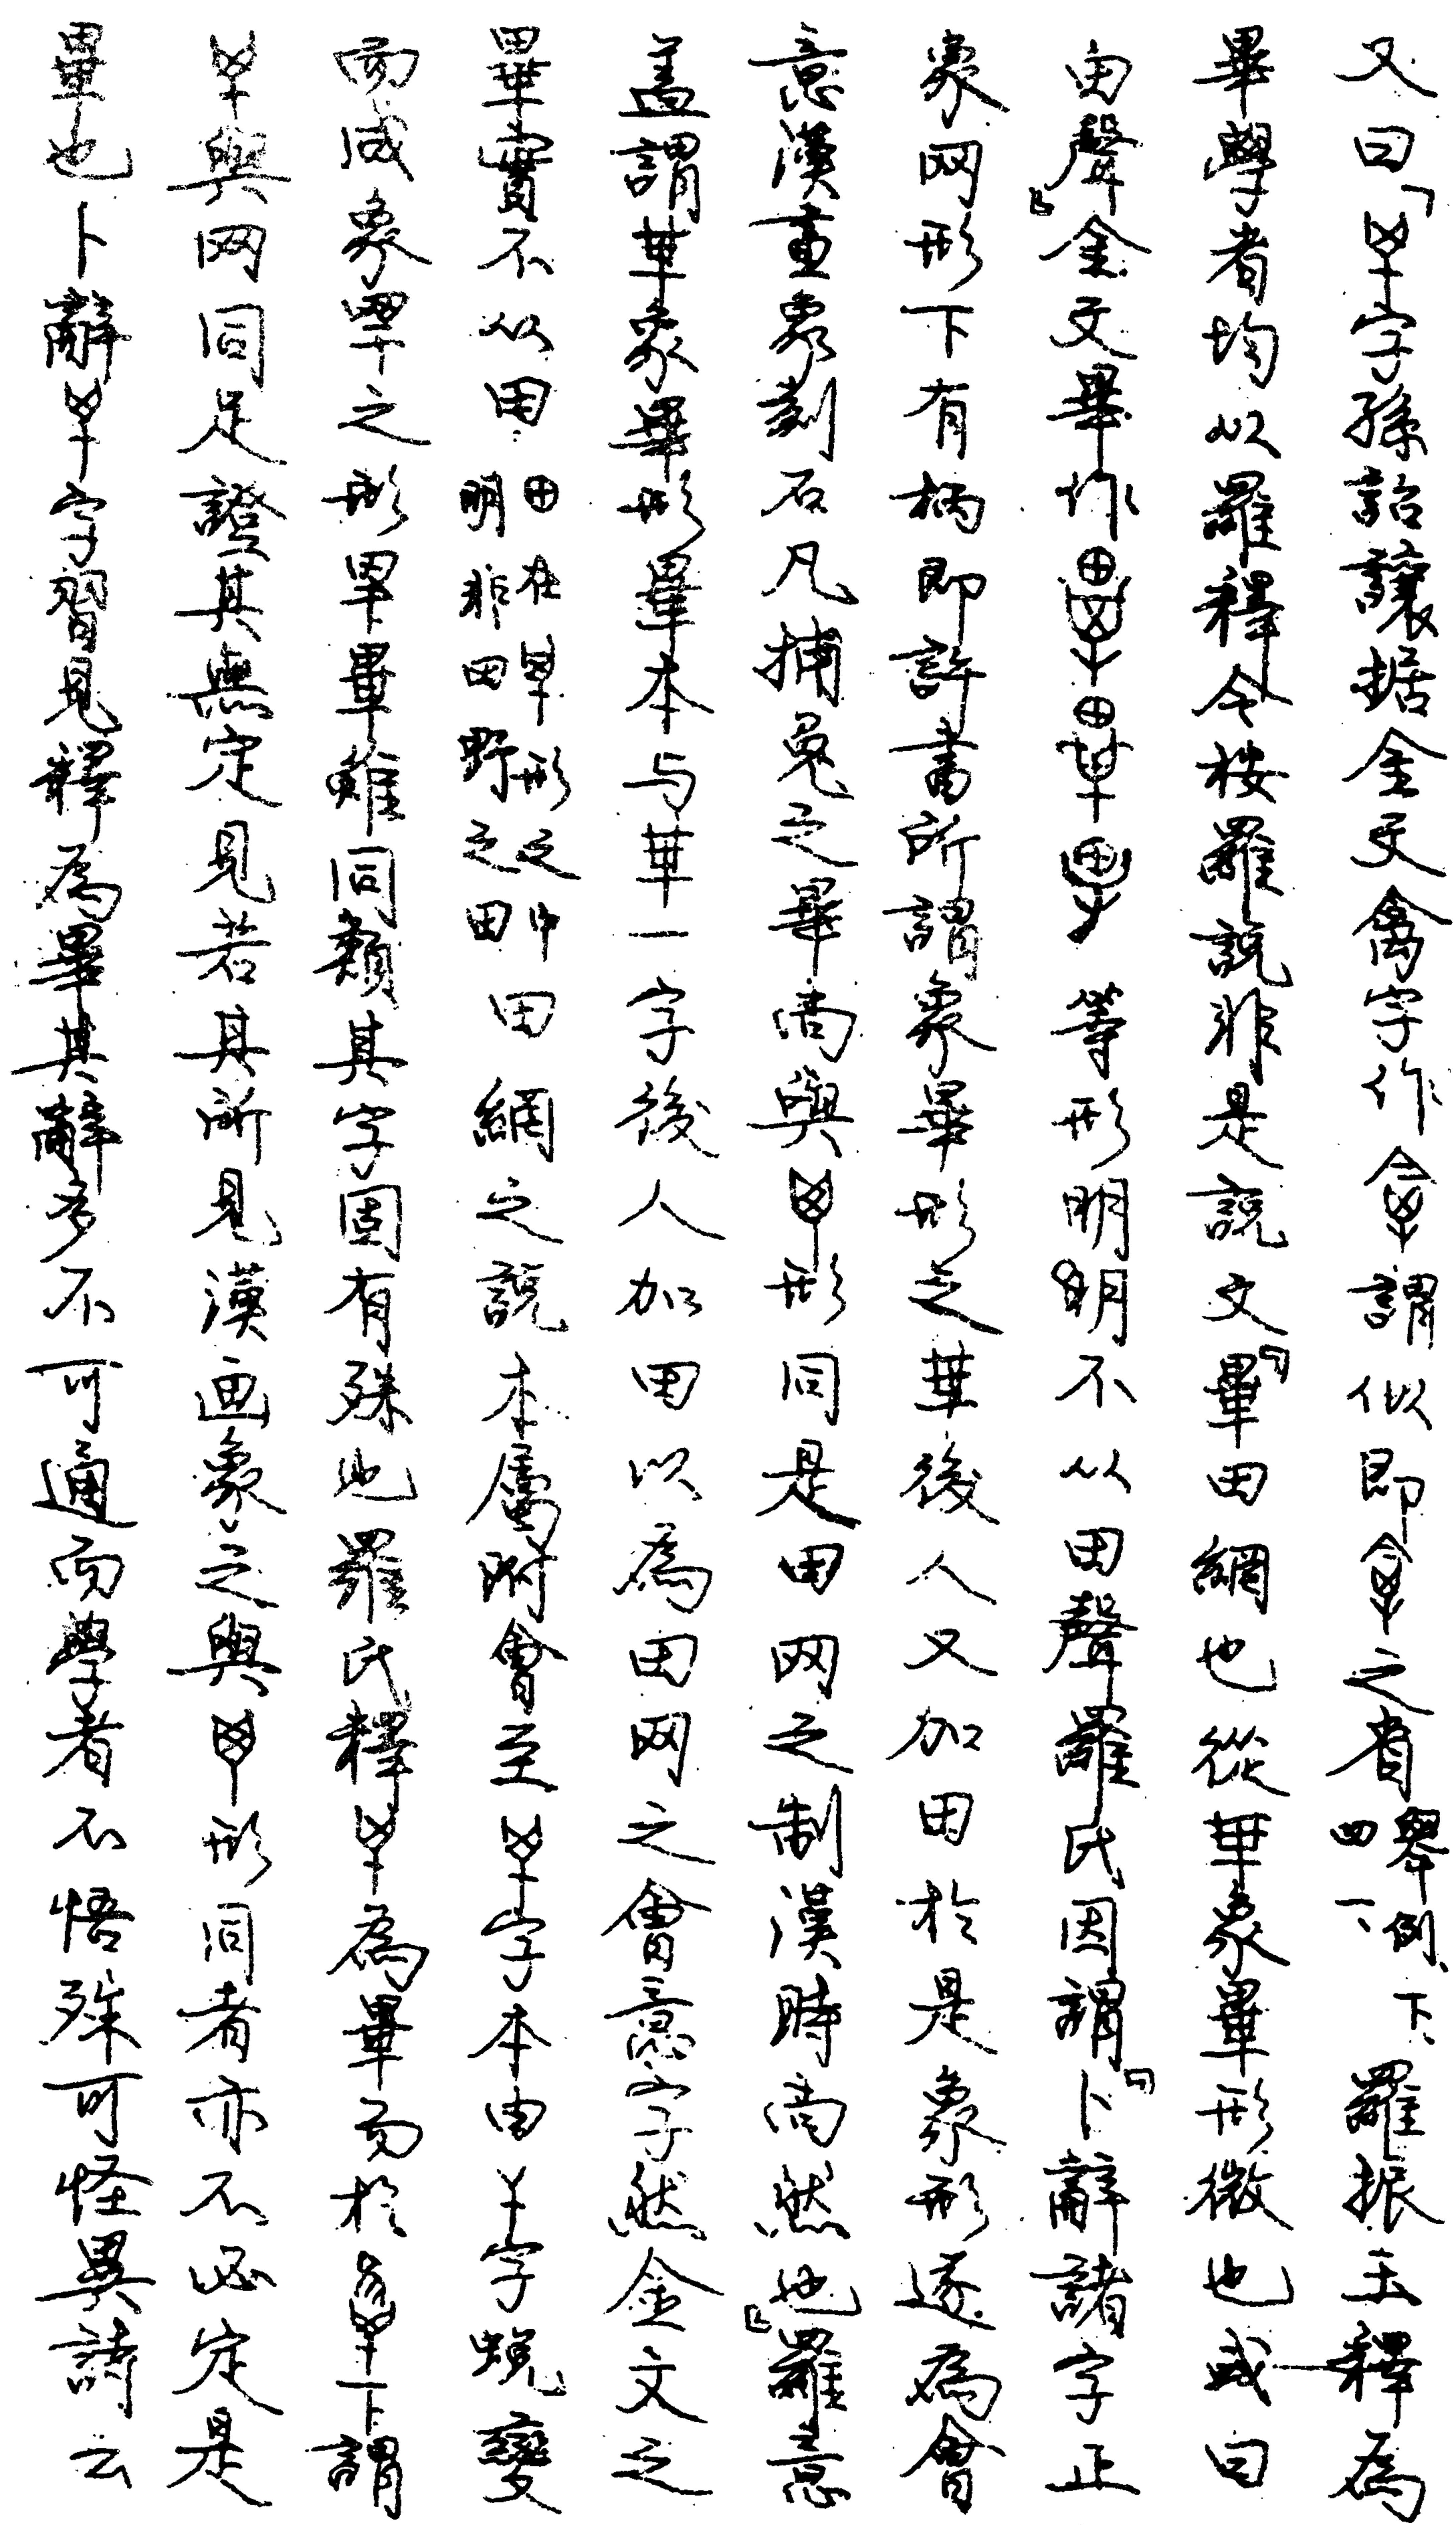 又曰「字孫詒讓据金文禽字作謂似即之省舉例下四一、羅振玉釋為
畢學者均以羅釋今按羅說非是說文『畢田網也從𠦒象畢形微也或曰
田聲』金文畢作等形明明不从田聲羅氏因謂『卜辭諸字正
象网形下有柄即許書所謂象畢形之𠦒後人又加田於是象形遂為會
意漢畫象刻石凡捕兔之畢尚與形同是田网之制漢時尚然也』羅意
蓋謂𠦒象畢形畢本与𠦒一字後人加田以為田网之會意字然金文之
畢實不从田田在形之中明非田野之田田網之說本屬附會至字本由字蛻變
而成象䍐之形䍐畢雖同類其字固有殊也羅氏釋為畢而於下謂
與网同足證其無定見若其所見漢画象之與形同者亦不必定是
畢也卜辭字習見釋為畢其辭多不可通而學者不悟殊可怪異詩云